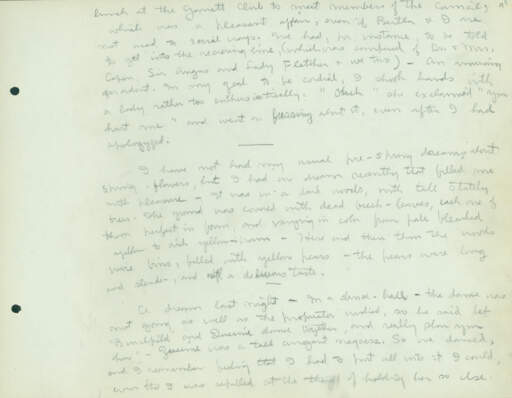 lunch at the Garrett Club to meet members of the Council, a
which was a pleasant affair, even if Bartlett & I are
not used to social ways. We had, for instance, to be told
to get into the receiving line, (which was composed of Dr. & Mrs.
Capen, Sir Angus and Lady Fletcher & we two) – An amusing
incident. In my zeal to be cordial, I shook hands with
a lady rather too enthusiastically. "Ouch" she exclaimed "you
hurt me" and went on fussing about it, even after I had
apologized.
I have not had my usual pre-spring dreams about
spring flowers, but I had a dream recently that filled me
with pleasure – It was in a dark woods, with tall stately
trees. The ground was covered with dead beech-leaves, each one of
them perfect in form, and varying in color from pale bleached
yellow to acid yellow-green – Here and there thru the woods
were bins, filled with yellow pears – the pears were long
and slender, and of a delicious taste.
A dream last night – In a dance-hall – the dance was
not going as well as the proprietor wished, so he said let
and Queenie dance together, and really
– Queenie was a tall arrogant negress. So we danced,
and I remember feeling that I had to put all into it I could,
even tho I was repelled at the of holding her so close.